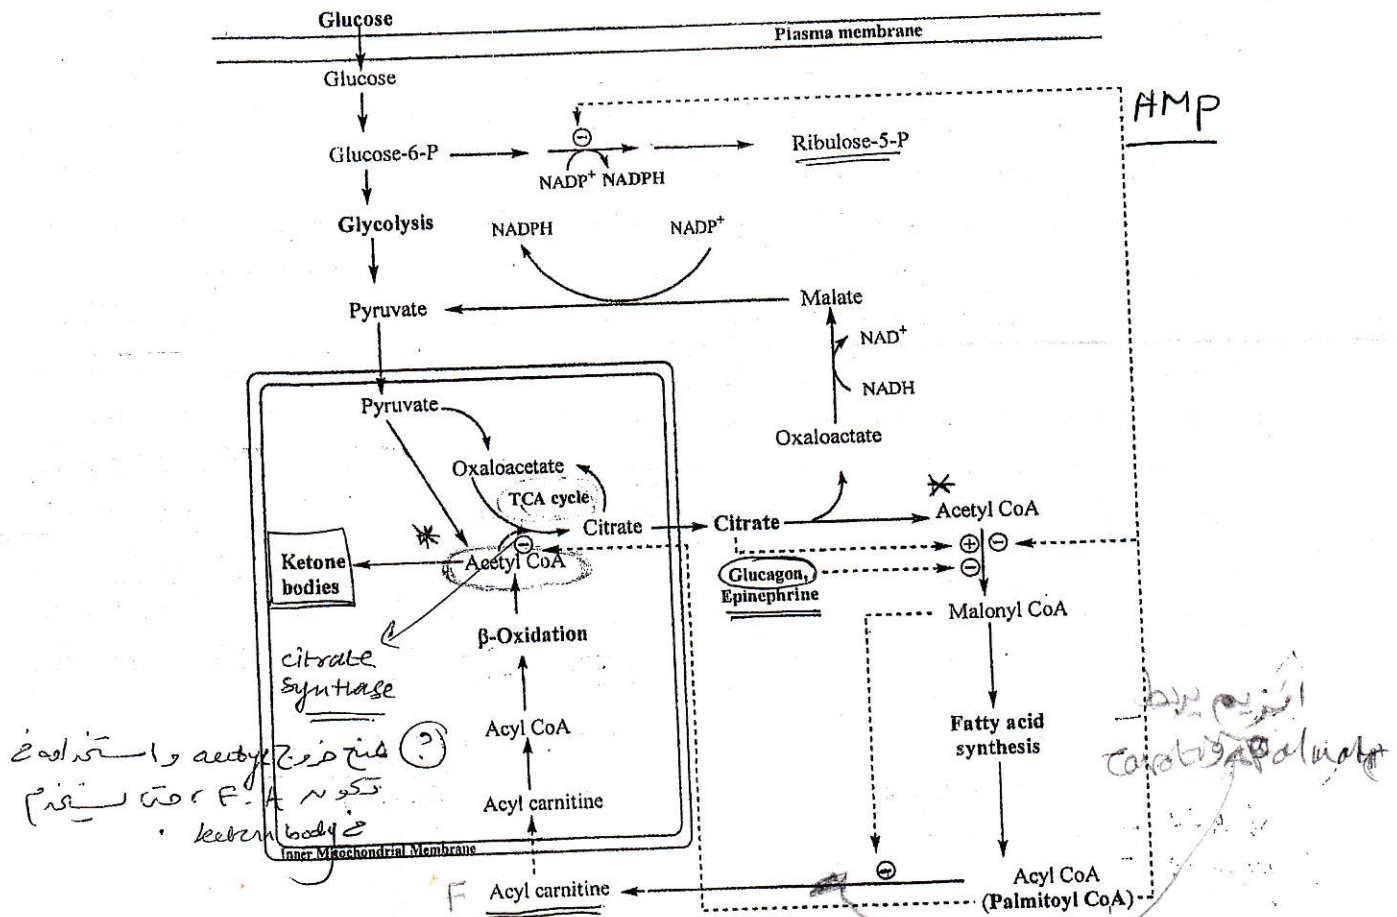 Glucose
Plasma membrane
Glucose
AMP
Glucose-6-P
Ribulose-5-P
NADP+ NADPH
Glycolysis
NADPH
NADP+
Pyruvate
Malate
NAD+
NADH
Pyruvate
Oxaloactate
Oxaloacetate
TCA cycle
Citrate
Citrate
Acetyl CoA
Ketone
bodies
Acetyl CoA
Glucagon,
Epinephrine
Malonyl CoA
β-Oxidation
citrate
synthase
Fatty acid
synthesis
انزيم يربط
Acyl CoA
Acyl carnitine
F.A
Inner Mitochondrial Membrane
F Acyl carnitine
Acyl CoA
(Palmitoyl CoA)